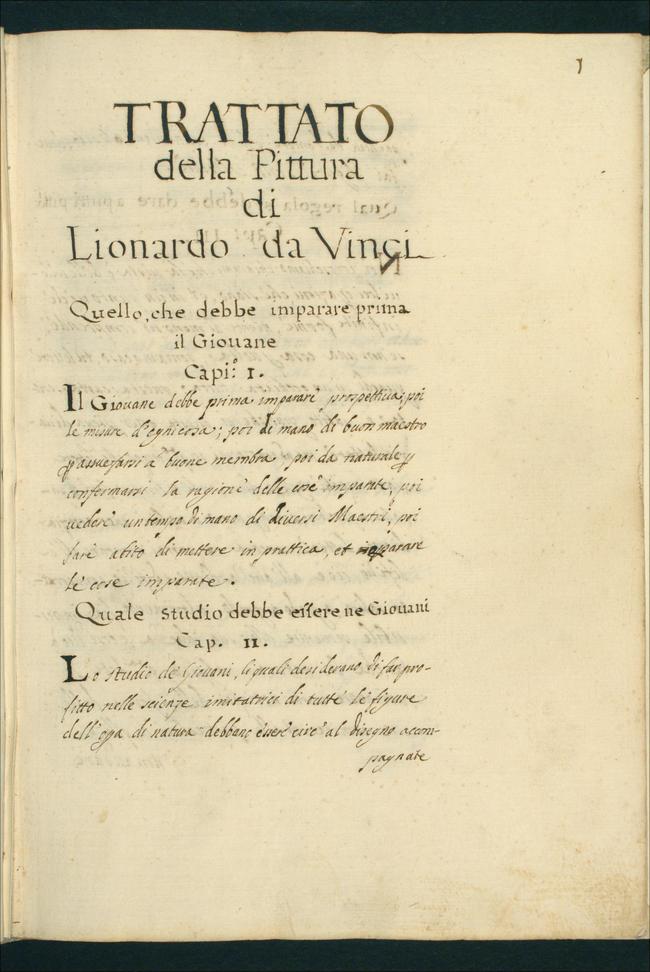 1
TRATTATO
della Pittura
di
Lionardo da Vinci
Quello, che debbe imparare prima
il Giouane
Capi:º 1.
Il Giouane debbe prima imparare prospettiua; poi
le misure d'ogni cosa; poi di mano di buon maestro
assuefarsi a buone membra poi da naturale
confermarsi la ragione delle cose imparate, poi
uedere un tempo di mano di diuersi Maestri, poi
fare abito di mettere in prattica, et parare
le cose imparate.
Quale studio debbe essere ne Giouani
Cap. 11.
Lo studio de Giouani, li quali desiderano di far pro-
fitto nelle scienze imitatrici di tutte le figure
dell' opa di natura debbono essere circ' al disegno accom-
pagnate